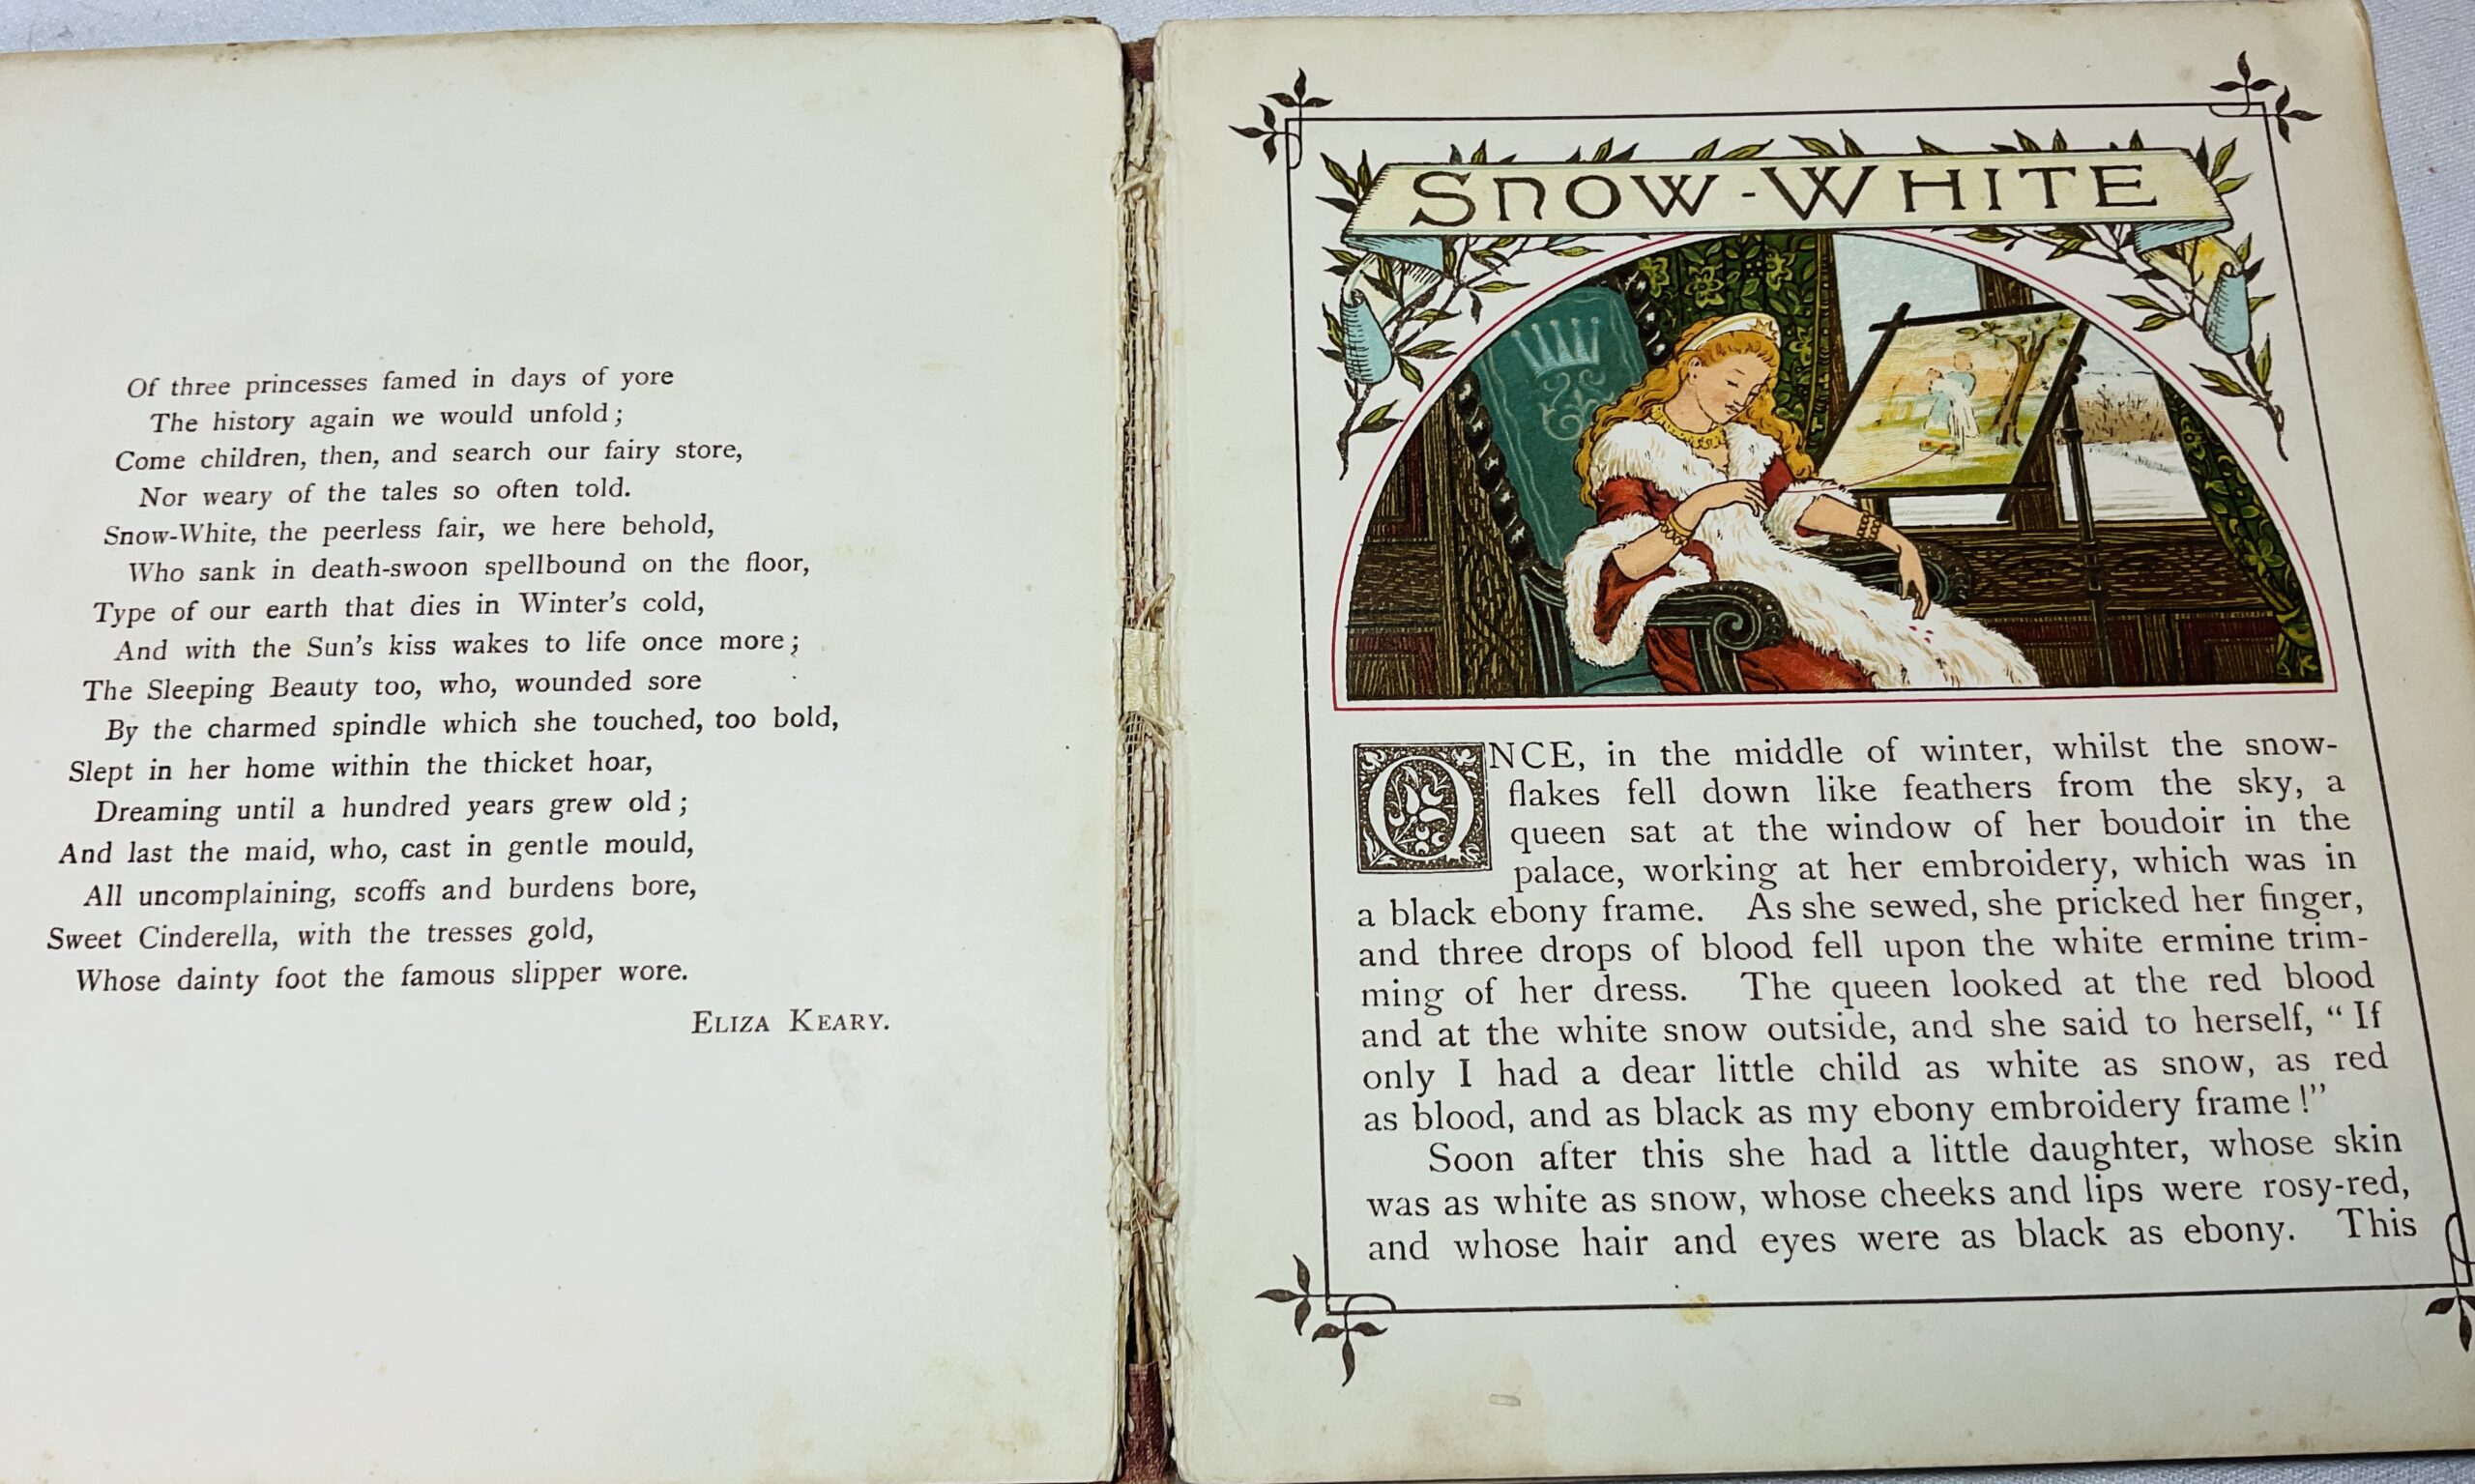 Of three princesses famed in days of yore
The history again we would unfold;
Come children, then, and search our fairy store,
Nor weary of the tales so often told.
Snow-White, the peerless fair, we here behold,
Who sank in death-swoon spellbound on the floor,
Type of our earth that dies in Winter's cold,
And with the Sun's kiss wakes to life once more;
The Sleeping Beauty too, who, wounded sore
By the charmed spindle which she touched, too bold,
Slept in her home within the thicket hoar,
Dreaming until a hundred years grew old;
And last the maid, who, cast in gentle mould,
All uncomplaining, scoffs and burdens bore,
Sweet Cinderella, with the tresses gold,
Whose dainty foot the famous slipper wore.
ELIZA KEARY.
SNOW-WHITE
ONCE, in the middle of winter, whilst the snow-
flakes fell down like feathers from the sky, a
queen sat at the window of her boudoir in the
palace, working at her embroidery, which was in
a black ebony frame. As she sewed, she pricked her finger,
and three drops of blood fell upon the white ermine trim-
ming of her dress. The queen looked at the red blood
and at the white snow outside, and she said to herself, "If
only I had a dear little child as white as snow, as red
as blood, and as black as my ebony embroidery frame!"
Soon after this she had a little daughter, whose skin
was as white as snow, whose cheeks and lips were rosy-red,
and whose hair and eyes were as black as ebony. This